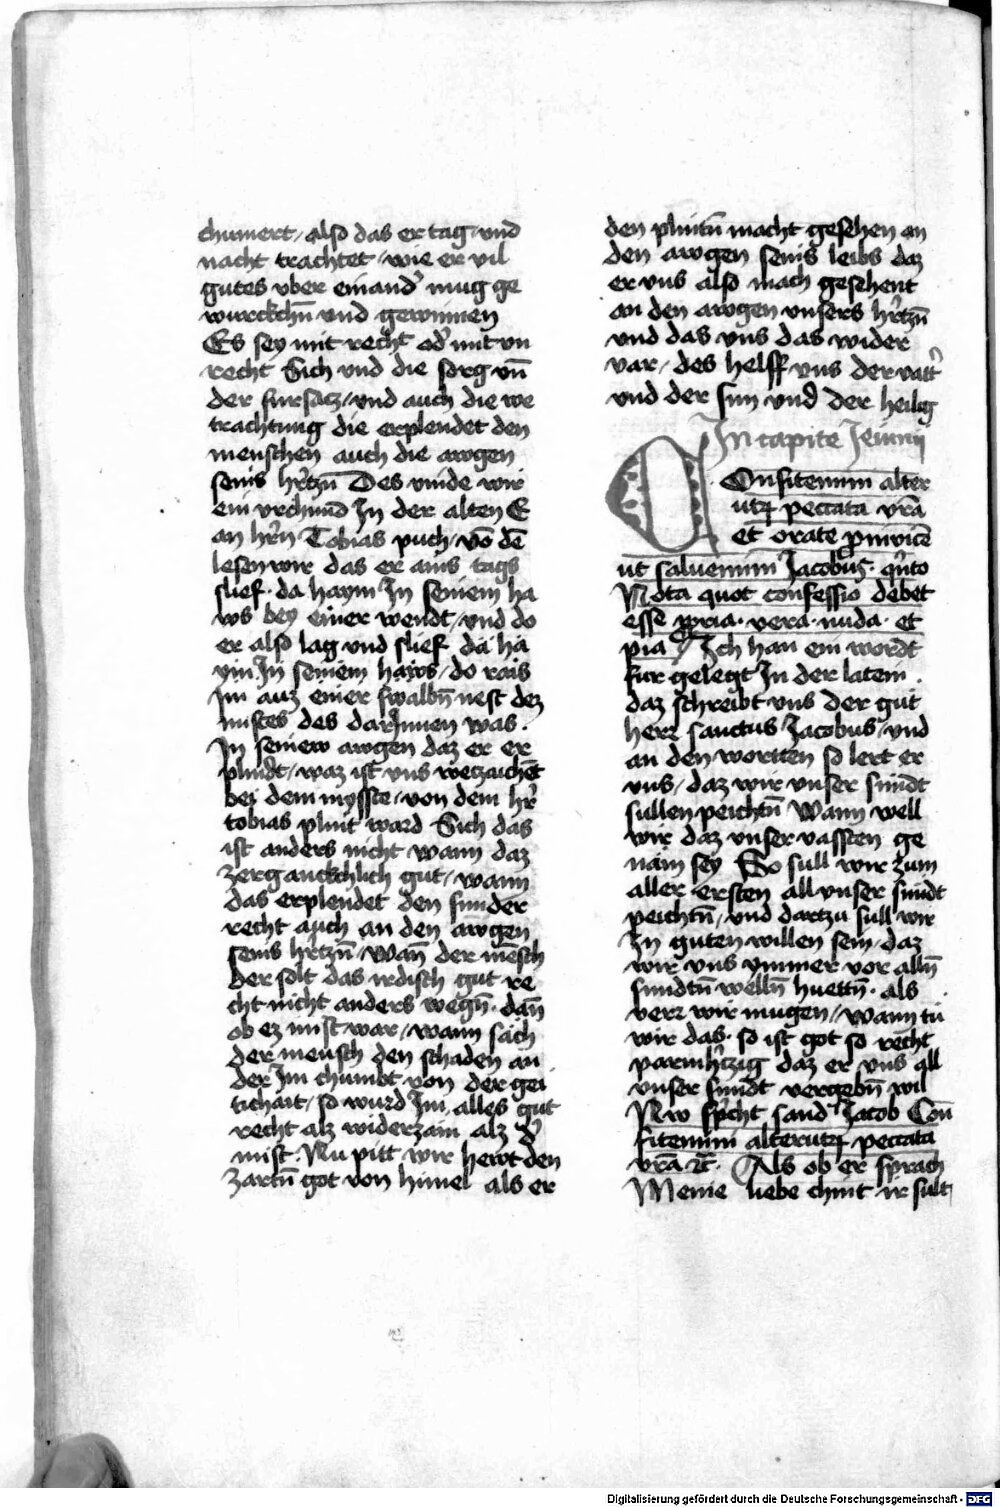 chumert / also das er tag und
nacht trachtet / wie er vil
gutes vber einand' mug ge
wurckchn̄ und gewinnen
Es sey mit recht od' mit vn
recht Sich und die sorg vn̄
der fursacz / und auch die we
trachtung die erplendet den
menschen auch die awgen
seins hr̄tzn̄ Des vinde wir
ein vrchund In der alten E
an hr̄n Tobias puch / vō dē
lesen wir das er ains tags
slief · da haym In seinem ha
ws bey einer wendt / und do
er also lag und slief da hā
ym In seinem haws / do rais
Im auz einer swalbn̄ nest dez
mistes des darInnen was ·
In seinew awgen daz er er
plindt / waz ist vns wetzaichēt
bei dem mysste / von dem hr̄
tobias plint ward Sich das
ist anders nicht wann daz
zerganckchlich gut / wann
das erplendet den sunder
recht auch an den awgen
seins hr̄tzn̄ / Wan̄ der mēsch
der solt das irdisch gut re
cht nicht anders wegn̄ · dan̄
ob ez mist war / wann säch
der mensch den schaden an
der Im chumbt von der gei
tichait / so wurd Im alles gut
recht alz widerzäm alz d'
mist · Nu pitt wir hewt den
zartn̄ got von himel als er
den plintn̄ macht gesehen an
den awgen seins leibs daz
er vns also mach gesehent
an den awgen unsers hr̄tzn̄
und das vns das wider
var / des helff vns der vatt'
und der sun und der heilig
In capite Jeiunij
Confitemini alter
utrum peccata vrā
et orate pinvicē
ut saluemini Jacobus · qīnto
Nota quot confessio debet
esse ꝓpria · vera · nuda · et
pia Ich han ein wordt
fur gelegt In der latein ·
daz schreibt vns der gut
herr sanctus Jacobus / und
an den wortten so lert er
vns / daz wir vnser sundt
sullen peichtn̄ Wann well
wir daz vnser vassten ge
näm sey So sull wir zum
aller ersten all vnser sundt
peichtn̄ / und dartzu sull wir
In guten willen sein / daz
wir vns ymmer vor alln̄
sundtn̄ welln̄ huettn̄ · als
verr wir mugen / Wann tū
wir das · so ist got so recht
parmhr̄tzig daz er vns all
vnser sundt vergebn̄ wil
Nw sp'cht sand Jacob Con
fitemini alterutrum peccata
vrā ꝛc̄ · Als ob er sprach
Meine liebe chint ir sult
Digitalisierung gefördert durch die Deutsche Forschungsgemeinschaft - DFG